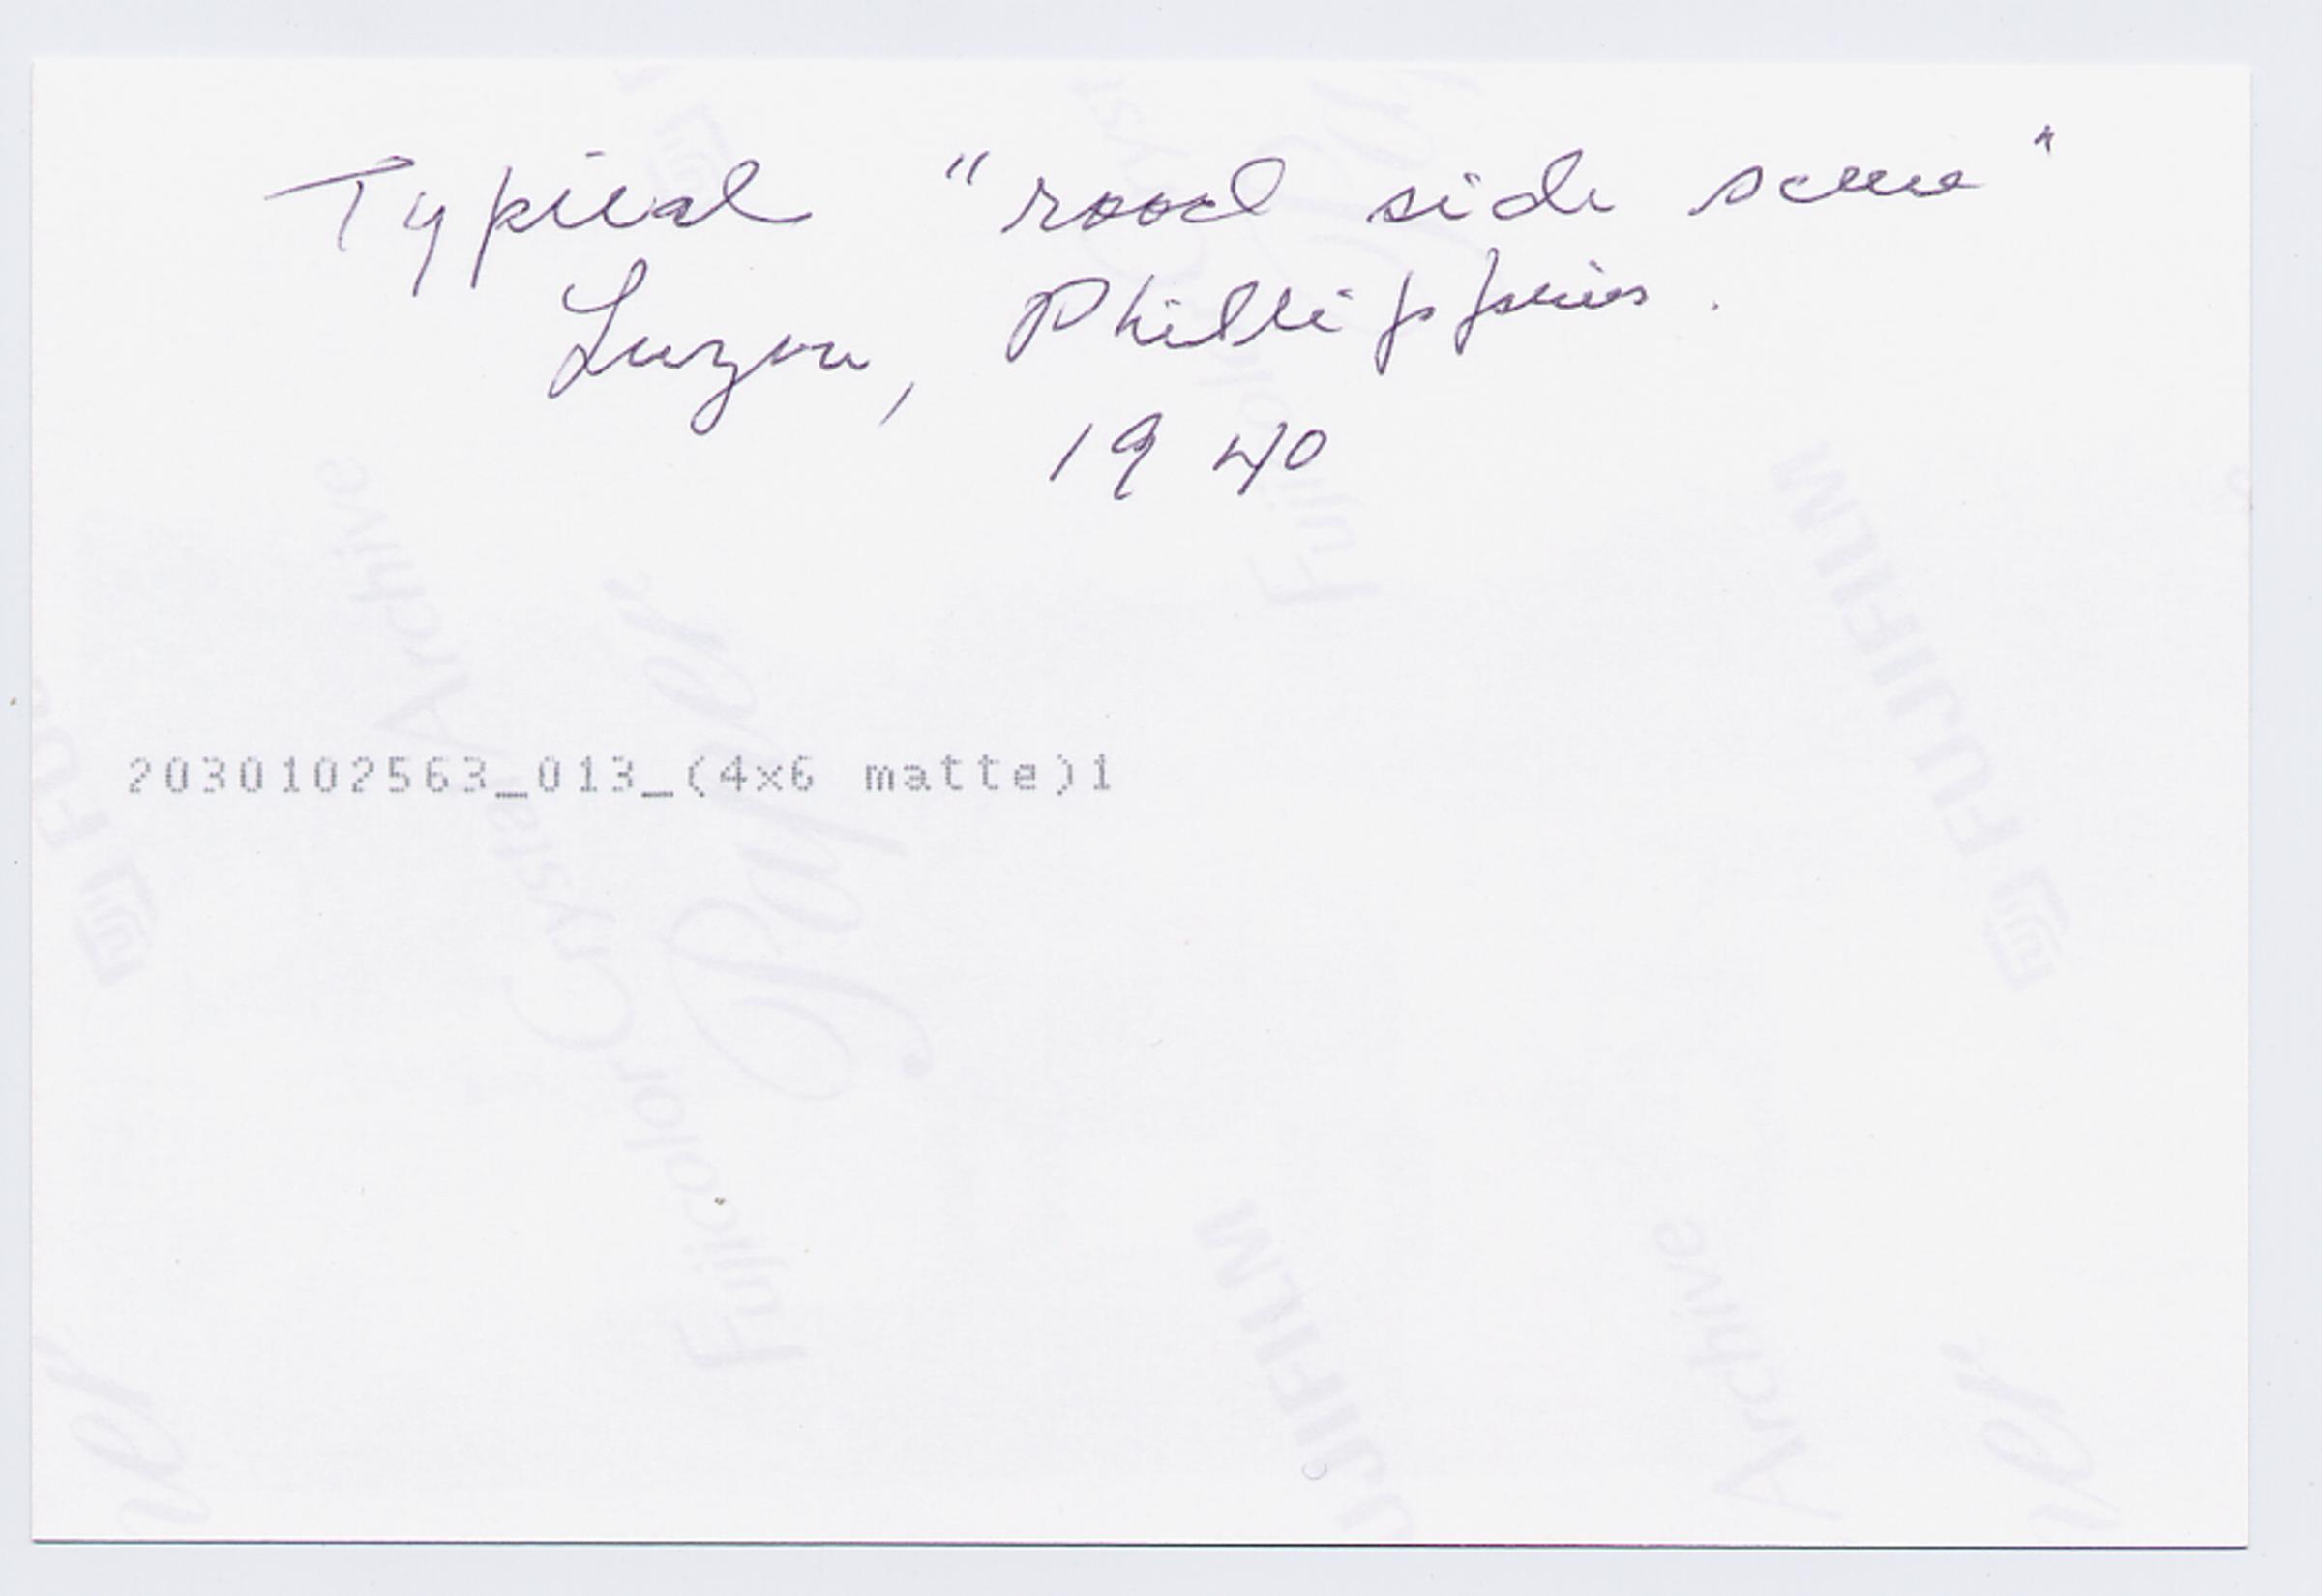 Typical "road side scene"
Luzon, Phillippines.
1940
2030102563_013_(4x6 matte)1
FUJIFILM
Fujicolor Crystal Archive
Paper
FUJIFILM
Archive